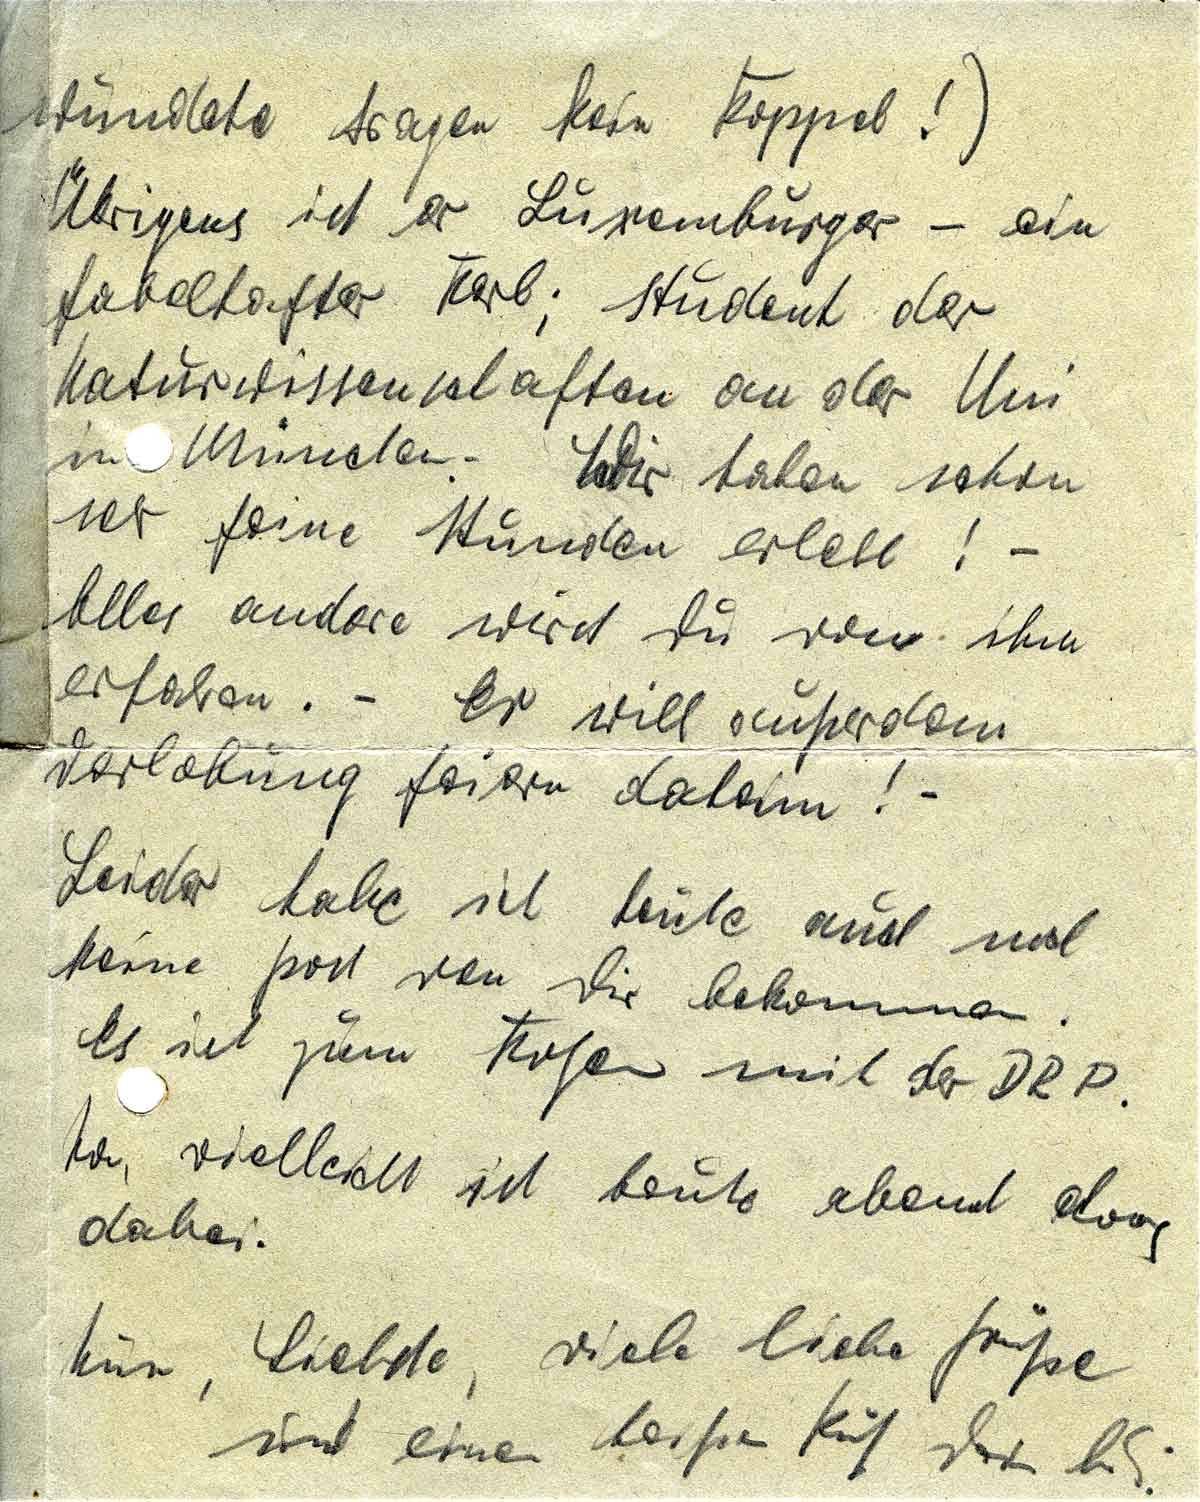 wundete tragen kein Koppel!)
Übrigens ist er Luxemburger – ein
fabelhafter Kerl; Student der
Naturwissenschaften an der Uni
in München. Wir haben schon
ser feine Stunden erlebt! –
Alles andere wirst Du von ihm
erfahren. – Er will außerdem
Verlobung feiern daheim! –
Leider habe ich heute auch noch
keine Post von Dir bekommen.
Es ist zum Kotzen mit der DRP.
Na, vielleicht ist heute abend etwas
dabei.
Nun, Liebste, viele liebe Grüße
und einen heißen Kuß Dein